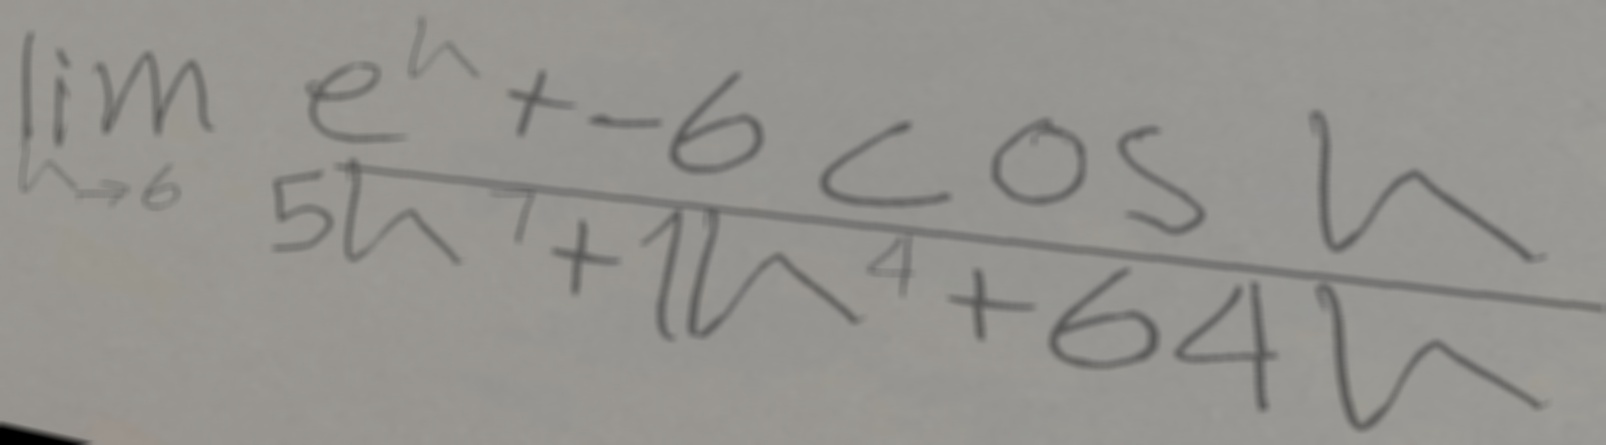 \lim_{h \to 6} \frac{e^h + -6 \cos h}{5h^7 + 1h^4 + 64h}